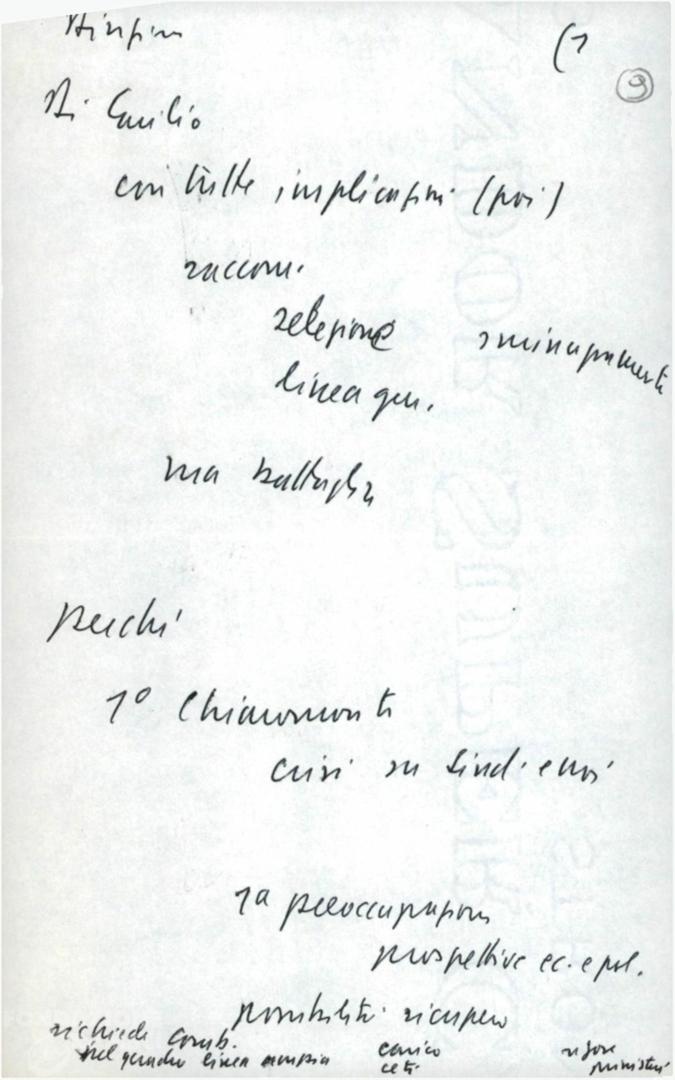 (1
9
Emilio
con tutte implicazioni (poi)
raccom.
relazione
linea gen.
ma battaglia
perché
1° Chiaromonte
crisi su sind. e noi
1a preoccupazione
prospettive ec. e pol.
possibilità ricupero
richiede comb.
nel quadro linea
carico
ceti
rigore
ministeri